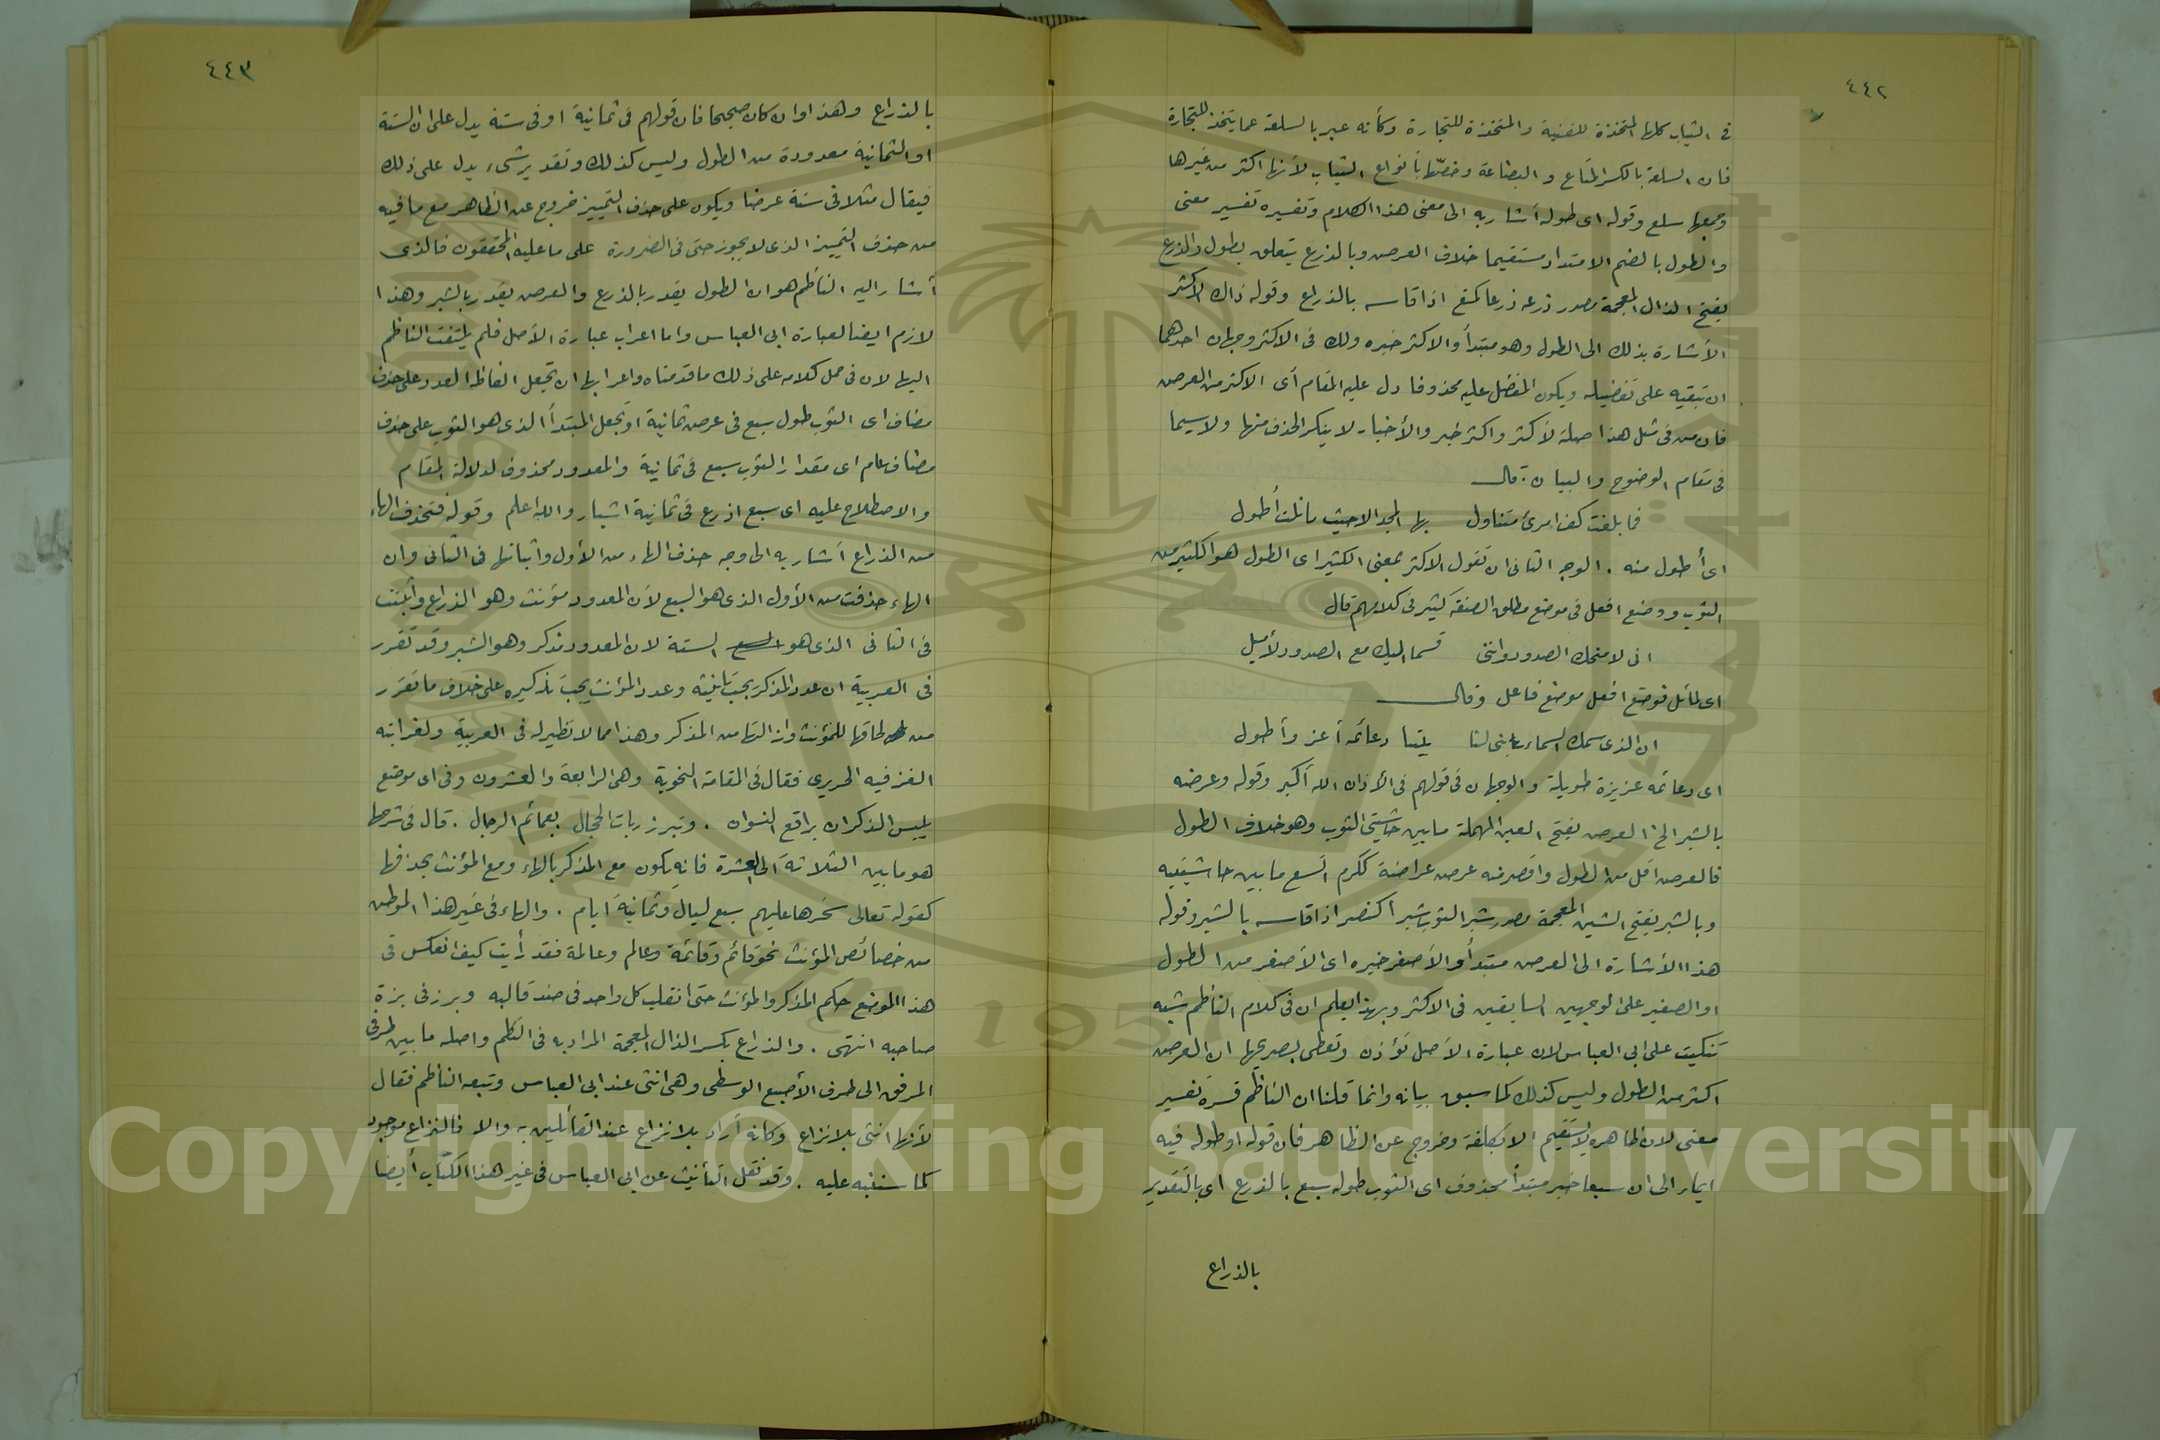 ٤٤٢
فى الثياب كلها المتخذة للقنية والمتخذة للتجارة وكأنه عبر بالسلعة عما يتخذ للتجارة
فان السلعة بالكسر المتاع والبضاعة وخصّها بأنواع الثياب لأنها اكثر من غيرها
وجمعها سلع وقوله اى طوله أشار به الى معنى هذا الكلام وتفسيره تفسير معنى
والطول بالضم الامتداد مستقيما خلاف العرض وبالذرع يتعلق بطول والذرع
بفتح الذال المعجمة مصدر ذرعه ذرعا كمنع اذا قاسه بالذراع وقوله ذاك الاكثر
الأشارة بذلك الى الطول وهو مبتدأ والاكثر خبره ولك فى الاكثر وجهان احدهما
ان تبقيه على تفضيله ويكون المفضل عليه محذوفا دل عليه المقام أى الاكثر من العرض
فان من فى مثل هذا صلة لأكثر واكثر خبر والأخبار لا ينكر الحذف منها ولا سيما
فى مقام الوضوح والبيان قال
فما بلغت كف امرئ متناول بها المجد الا حيث ما نلت أطول
اى أطول منه . الوجه الثانى ان تقول الاكثر بمعنى الكثير اى الطول هو الكثير من
الثوب ووضع افعل فى موضع مطلق الصفة كثير فى كلامهم قال
انى لامنحك الصدود واننى قسما اليك مع الصدود لأميل
اى لمائل فوضع افعل موضع فاعل وقال
ان الذى سمك السماء بنى لنا بيتا دعائمه أعز وأطول
اى دعائمه عزيزة طويلة والوجهان فى قولهم فى الأذان الله أكبر وقوله وعرضه
بالشبر الخ العرض بفتح العين المهملة ما بين حاشيتى الثوب وهو خلاف الطول
فالعرض اقل من الطول واقصر منه عرض عراضة ككرم اتسع ما بين حاشيتيه
وبالشبر بفتح الشين المعجمة مصدر شبر الثوب شبرا كنصر اذا قاسه بالشبر وقوله
هذا الأشارة الى العرض مبتدأ والأصغر خبره اى الأصغر من الطول
او الصغير على الوجهين السابقين فى الاكثر وبهذا يعلم ان فى كلام الناظم شبه
تنكيت على ابى العباس لان عبارة الأصل تؤذن وتعطى بصريحها ان العرض
اكثر من الطول وليس كذلك كما سبق بيانه وانما قلنا ان الناظم فسره تفسير
معنى لان ظاهره لا يستقيم الا بكلفة وخروج عن الظاهر فان قوله او طوله فيه
ايماء الى ان سبعا خبر مبتدأ محذوف اى الثوب طوله سبع بالذرع اى بالتقدير
بالذراع
٤٤٣
بالذراع وهذا وان كان صحيحا فان قولهم فى ثمانية او فى ستة يدل على ان الستة
او الثمانية معدودة من الطول وليس كذلك وتقدير شىء يدل على ذلك
فيقال مثلا فى ستة عرضا ويكون على حذف التمييز خروج عن الظاهر مع ما فيه
من حذف التمييز الذى لا يجوز حتى فى الضرورة على ما عليه المحققون فالذى
أشار اليه الناظم هو ان الطول يقدر بالذرع والعرض يقدر بالشبر وهذا
لازم ايضا لعبارة ابى العباس واما اعراب عبارة الأصل فلم يلتفت الناظم
اليها لان فى حمل كلامه على ذلك ما قدمناه واعرابها ان تجعل الفاظ العدد على حذف
مضاف اى الثوب طول سبع فى عرض ثمانية او تجعل المبتدأ الذى هو الثوب على حذف
مضاف عام اى مقدار الثوب سبع فى ثمانية والمعدود محذوف لدلالة المقام
والاصطلاح عليه اى سبع اذرع فى ثمانية اشبار والله اعلم وقوله فتحذف الهاء
من الذراع أشار به الى وجه حذف الهاء من الأول واثباتها فى الثانى وان
الهاء حذفت من الأول الذى هو السبع لأن المعدود مؤنث وهو الذراع وأثبتت
فى الثانى الذى هو الستة لان المعدود مذكر وهو الشبر وقد تقرر
فى العربية ان عدد المذكر يجب تأنيثه وعدد المؤنث يجب تذكيره على خلاف ما تقرر
من لحاقها للمؤنث وازالتها من المذكر وهذا مما لا نظير له فى العربية ولغرابته
الغز فيه الحريرى فقال فى المقامة النحوية وهى الرابعة والعشرون وفى اى موضع
يلبس الذكران براقع النسوان . وتبرز ربات الحجال بعمائم الرجال . قال فى شرحها
هو ما بين الثلاثة الى العشرة فانه يكون مع المذكر بالهاء ومع المؤنث بحذفها
كقوله تعالى سخرها عليهم سبع ليال وثمانية ايام . والهاء فى غير هذا الموطن
من خصائص المؤنث نحو قائم وقائمة وعالم وعالمة فقد رأيت كيف انعكس فى
هذا الموضع حكم المذكر والمؤنث حتى انقلب كل واحد فى ضد قالبه وبرز فى بزة
صاحبه انتهى . والذراع بكسر الذال المعجمة المراد به فى النظم واصله ما بين طرفى
المرفق الى طرف الأصبع الوسطى وهى انثى عند ابى العباس وتبعه الناظم فقال
لأنها انثى بلا نزاع وكأنه أراد بلا نزاع عند القائلين به والا فالنزاع موجود
كما سننبه عليه . وقد نقل التأنيث عن ابى العباس فى غير هذا الكتاب أيضا
Copyright © King Saud University
1957